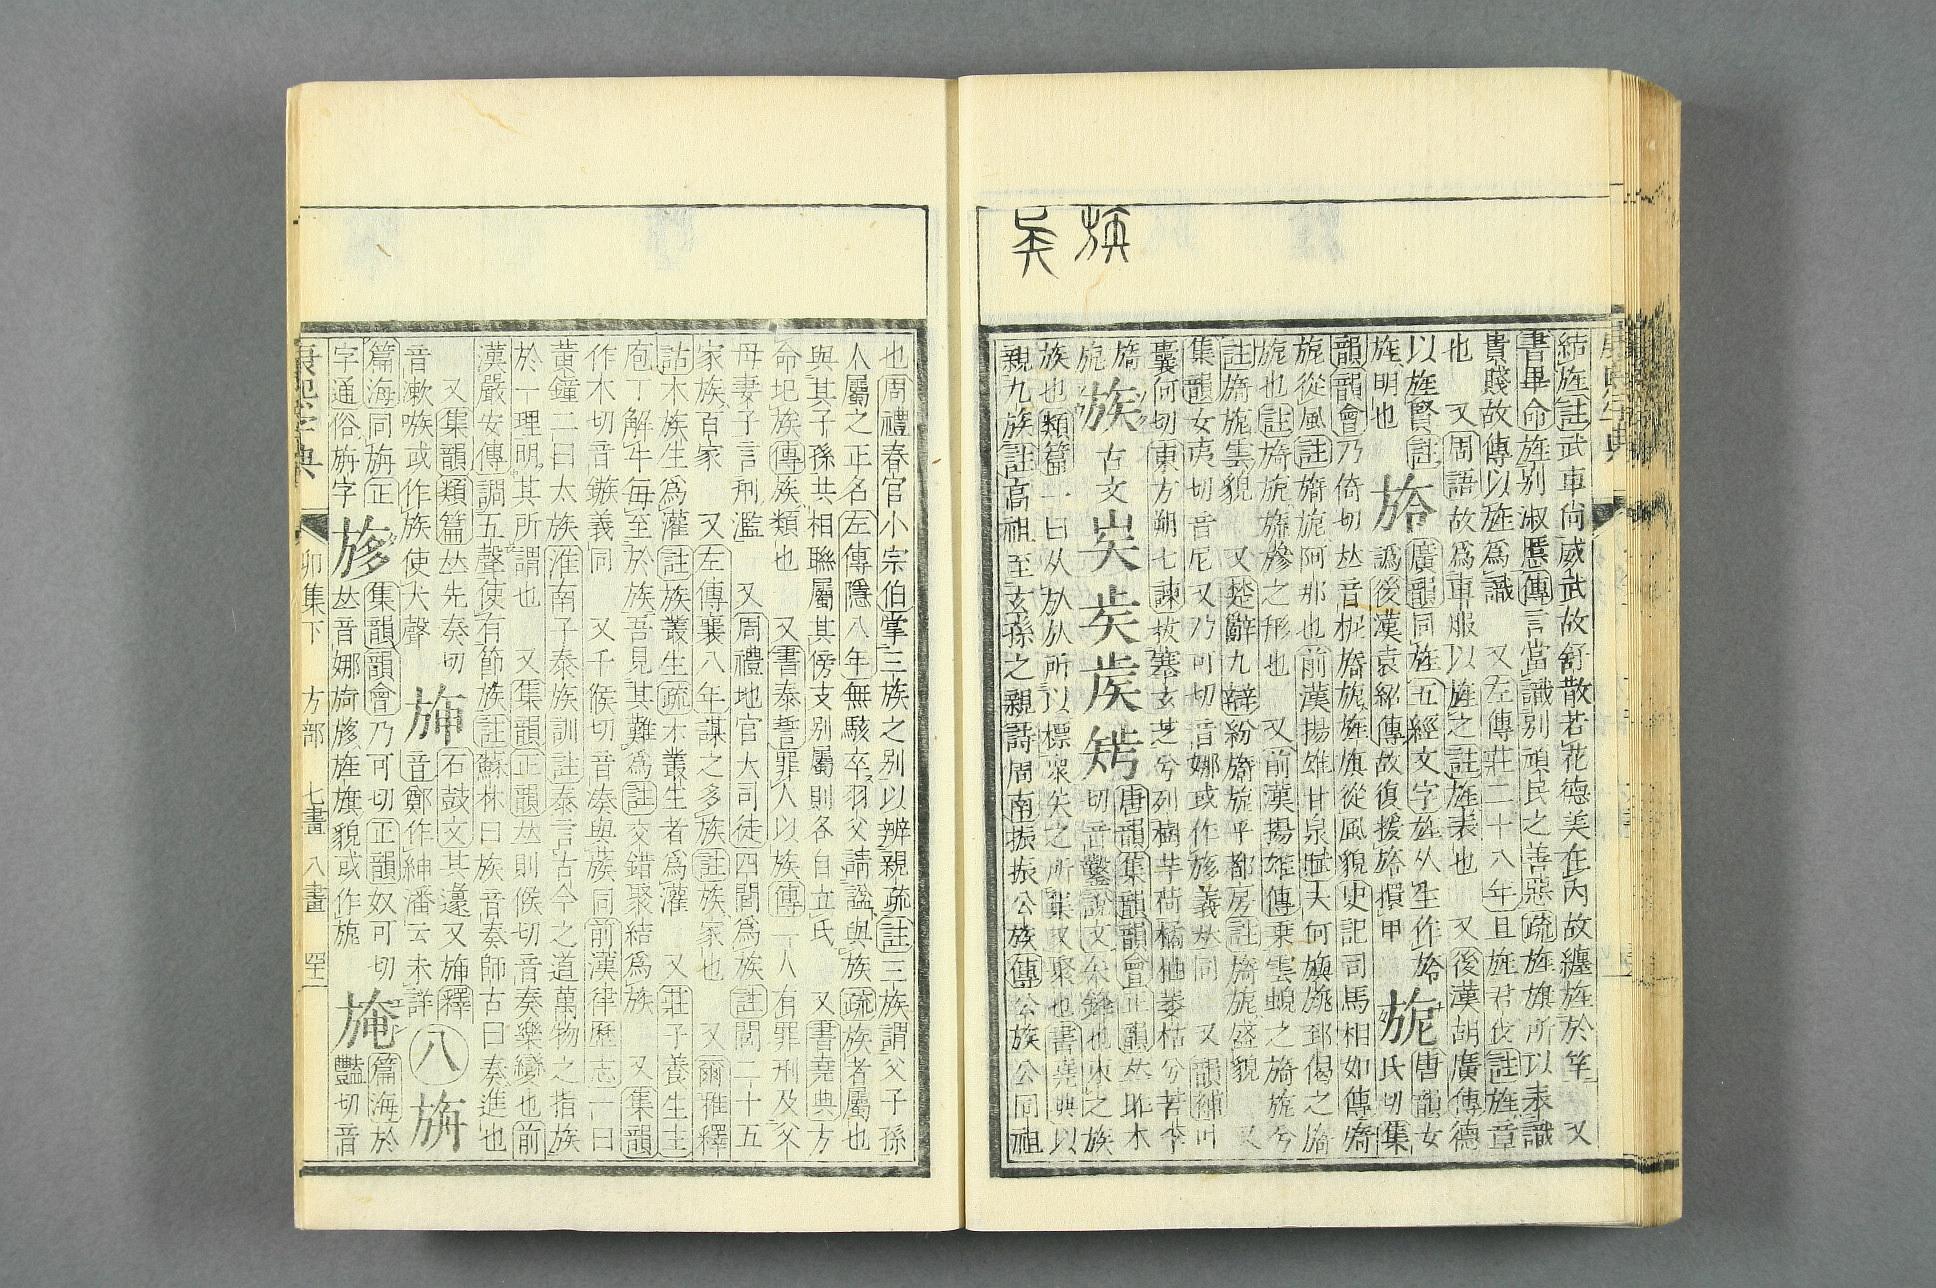 結旌註武車尙威武故舒散若花德美在內故纏旌於竿 又
書畢命旌别淑慝傳言當識别頑民之善惡疏旌旗所以表識
貴賤故傳以旌爲識 又左傳莊二十八年且旌君伐註旌章
也 又周語故爲車服以旌之註旌表也 又後漢胡廣傳德
以旌賢註
旌明也
旍
廣韻同旌五經文字旌从生作旍
譌後漢袁紹傳故復援旍擐甲
旎
唐韻女
氏切集
韻韻會乃倚切𠀤音柅旖旎旌旗從風貌史記司馬相如傳旖
旎從風註旖旎阿那也前漢揚雄甘泉賦夫何旟旐郅偈之旖
旎也註旖旎旒旐之形也 又前漢揚雄傳乗雲蜺之旖旎兮
註旖旎雲貌 又楚辭九辯紛旖旎乎都房註旖旎盛貌 又
集韻女夷切音尼又乃可切音娜或作旑義𠀤同 又韻補叶
囊何切東方朔七諫拔搴玄芝兮列樹芋荷橘柚萎枯兮苦李
旖
旎
族
古文
㞺 𣃀 𥎦 𥎸
唐韻集韻韻會正韻𠀤昨木
切音鑿說文矢鋒也束之族
族也類篇一曰从㫃㫃所以標衆矢之所集又聚也書堯典以
親九族註高祖至玄孫之親詩周南振振公族傳公族公同祖
族
也周禮春官小宗伯掌三族之别以辨親疏註三族謂父子孫
人屬之正名左傳隱八年無駭卒羽父請諡與族疏族者屬也
與其子孫共相聯屬其傍支别屬則各自立氏 又書堯典方
命圮族傳族類也 又書泰誓罪人以族傳一人有罪刑及父
母妻子言刑濫 又周禮地官大司徒四閭爲族註閭二十五
家族百家 又左傳襄八年謀之多族註族家也 又爾雅釋
詁木族生爲灌註族叢生疏木叢生者爲灌 又莊子養生主
庖丁解牛每至於族吾見其難爲註交錯聚結爲族 又集韻
作木切音鏃義同 又千候切音湊與蔟同前漢律歷志一曰
黃鐘二曰太族淮南子泰族訓註泰言古今之道萬物之指族
於一理明其所謂也 又集韻正韻𠀤則候切音奏樂變也前
漢嚴安傳調五聲使有節族註蘇林曰族音奏師古曰奏進也
又集韻類篇𠀤先奏切
音漱嗾或作族使犬聲
𣃞
石鼓文其邊又𣃞釋
音鄭作紳潘云未詳
八
旃
篇海同旃正
字通俗旃字
旑
集韻韻會乃可切正韻奴可切
𠀤音娜旖旑旌旗貌或作旎
𣄎
篇海於
豔切音
康熙字典
卯集下 方部 七畫 八畫